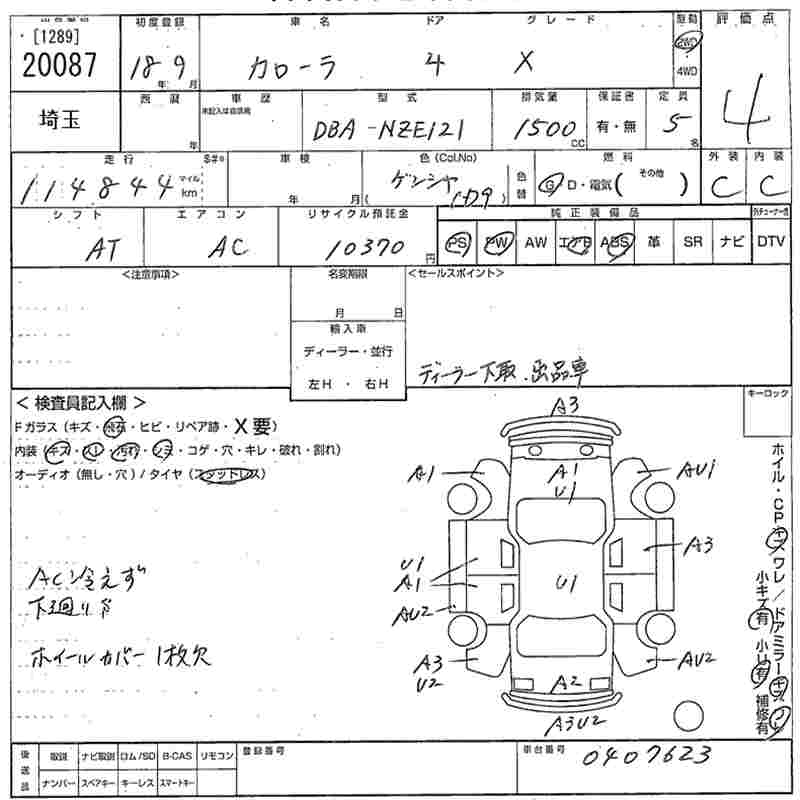 [1289]
20087
埼玉
初度登録
18年9月
車名
カローラ
ドア
4
グレード
X
駆動
2WD
4WD
評価点
4
西暦
年
車歴
型式
DBA-NZE121
排気量
1500
CC
保証書
有・無
定員
5名
走行
114844
マイル
km
S#*
車検
年 月
色(Col.No)
色替
燃料
G D・電気( その他 )
外装
C
内装
C
シフト
AT
エアコン
AC
リサイクル預託金
10370円
純正装備品
PS PW AW エアB ABS 革 SR ナビ
DTV
<注意事項>
名変期限
月 日
輸入車
ディーラー・並行
左H ・ 右H
<セールスポイント>
ディーラー下取.出品車
<検査員記入欄>
Fガラス(キズ・飛石・ヒビ・リペア跡・X要)
内装(キズ・スレ・汚れ・シミ・コゲ・穴・キレ・破れ・割れ)
オーディオ(無し・穴)/タイヤ(スタッドレス)
AC冷えず
下廻りサ
ホイールカバー1枚欠
キーロック
ホイル・CPキズワレ/ドアミラーキズワレ
小キズ有 小U有 補修有
A3
A1
A1
U1
AU1
U1
A1
A3
U1
AU2
A3
U2
AU2
A2
A3U2
後送品
取説 ナビ取説 ロム/SD B-CAS リモコン
ナンバー スペアキー キーレス スマートキー
登録番号
車台番号
0407623